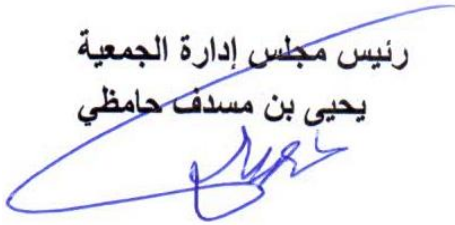 رئيس مجلس إدارة الجمعية
يحيى بن مسدف حامظي